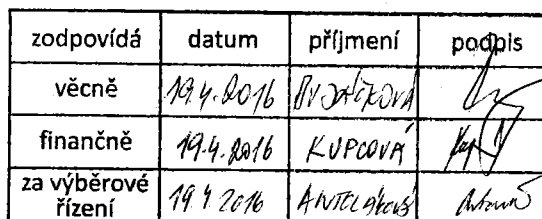 zodpovídá datum příjmení podpis
věcně 19.4.2016
finančně 19.4.2016 KUPCOVÁ
za výběrové
řízení 19.4.2016